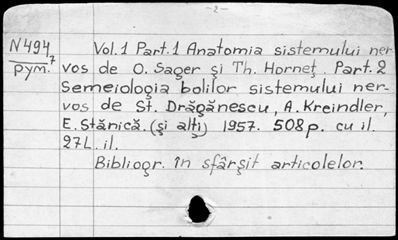 - 2 -
N494 Vol. 1 Part. 1 Anatomia sistemului ner-
рум. 7 vos de O. Sager și Th. Horneț. Part. 2
Semeiologia bolilor sistemului ner-
vos de St. Drăgănescu, A. Kreindler,
E. Stănică. (și alți) 1957. 508 p. cu il.
27 L. il.
Bibliogr. în sfârșit articolelor.